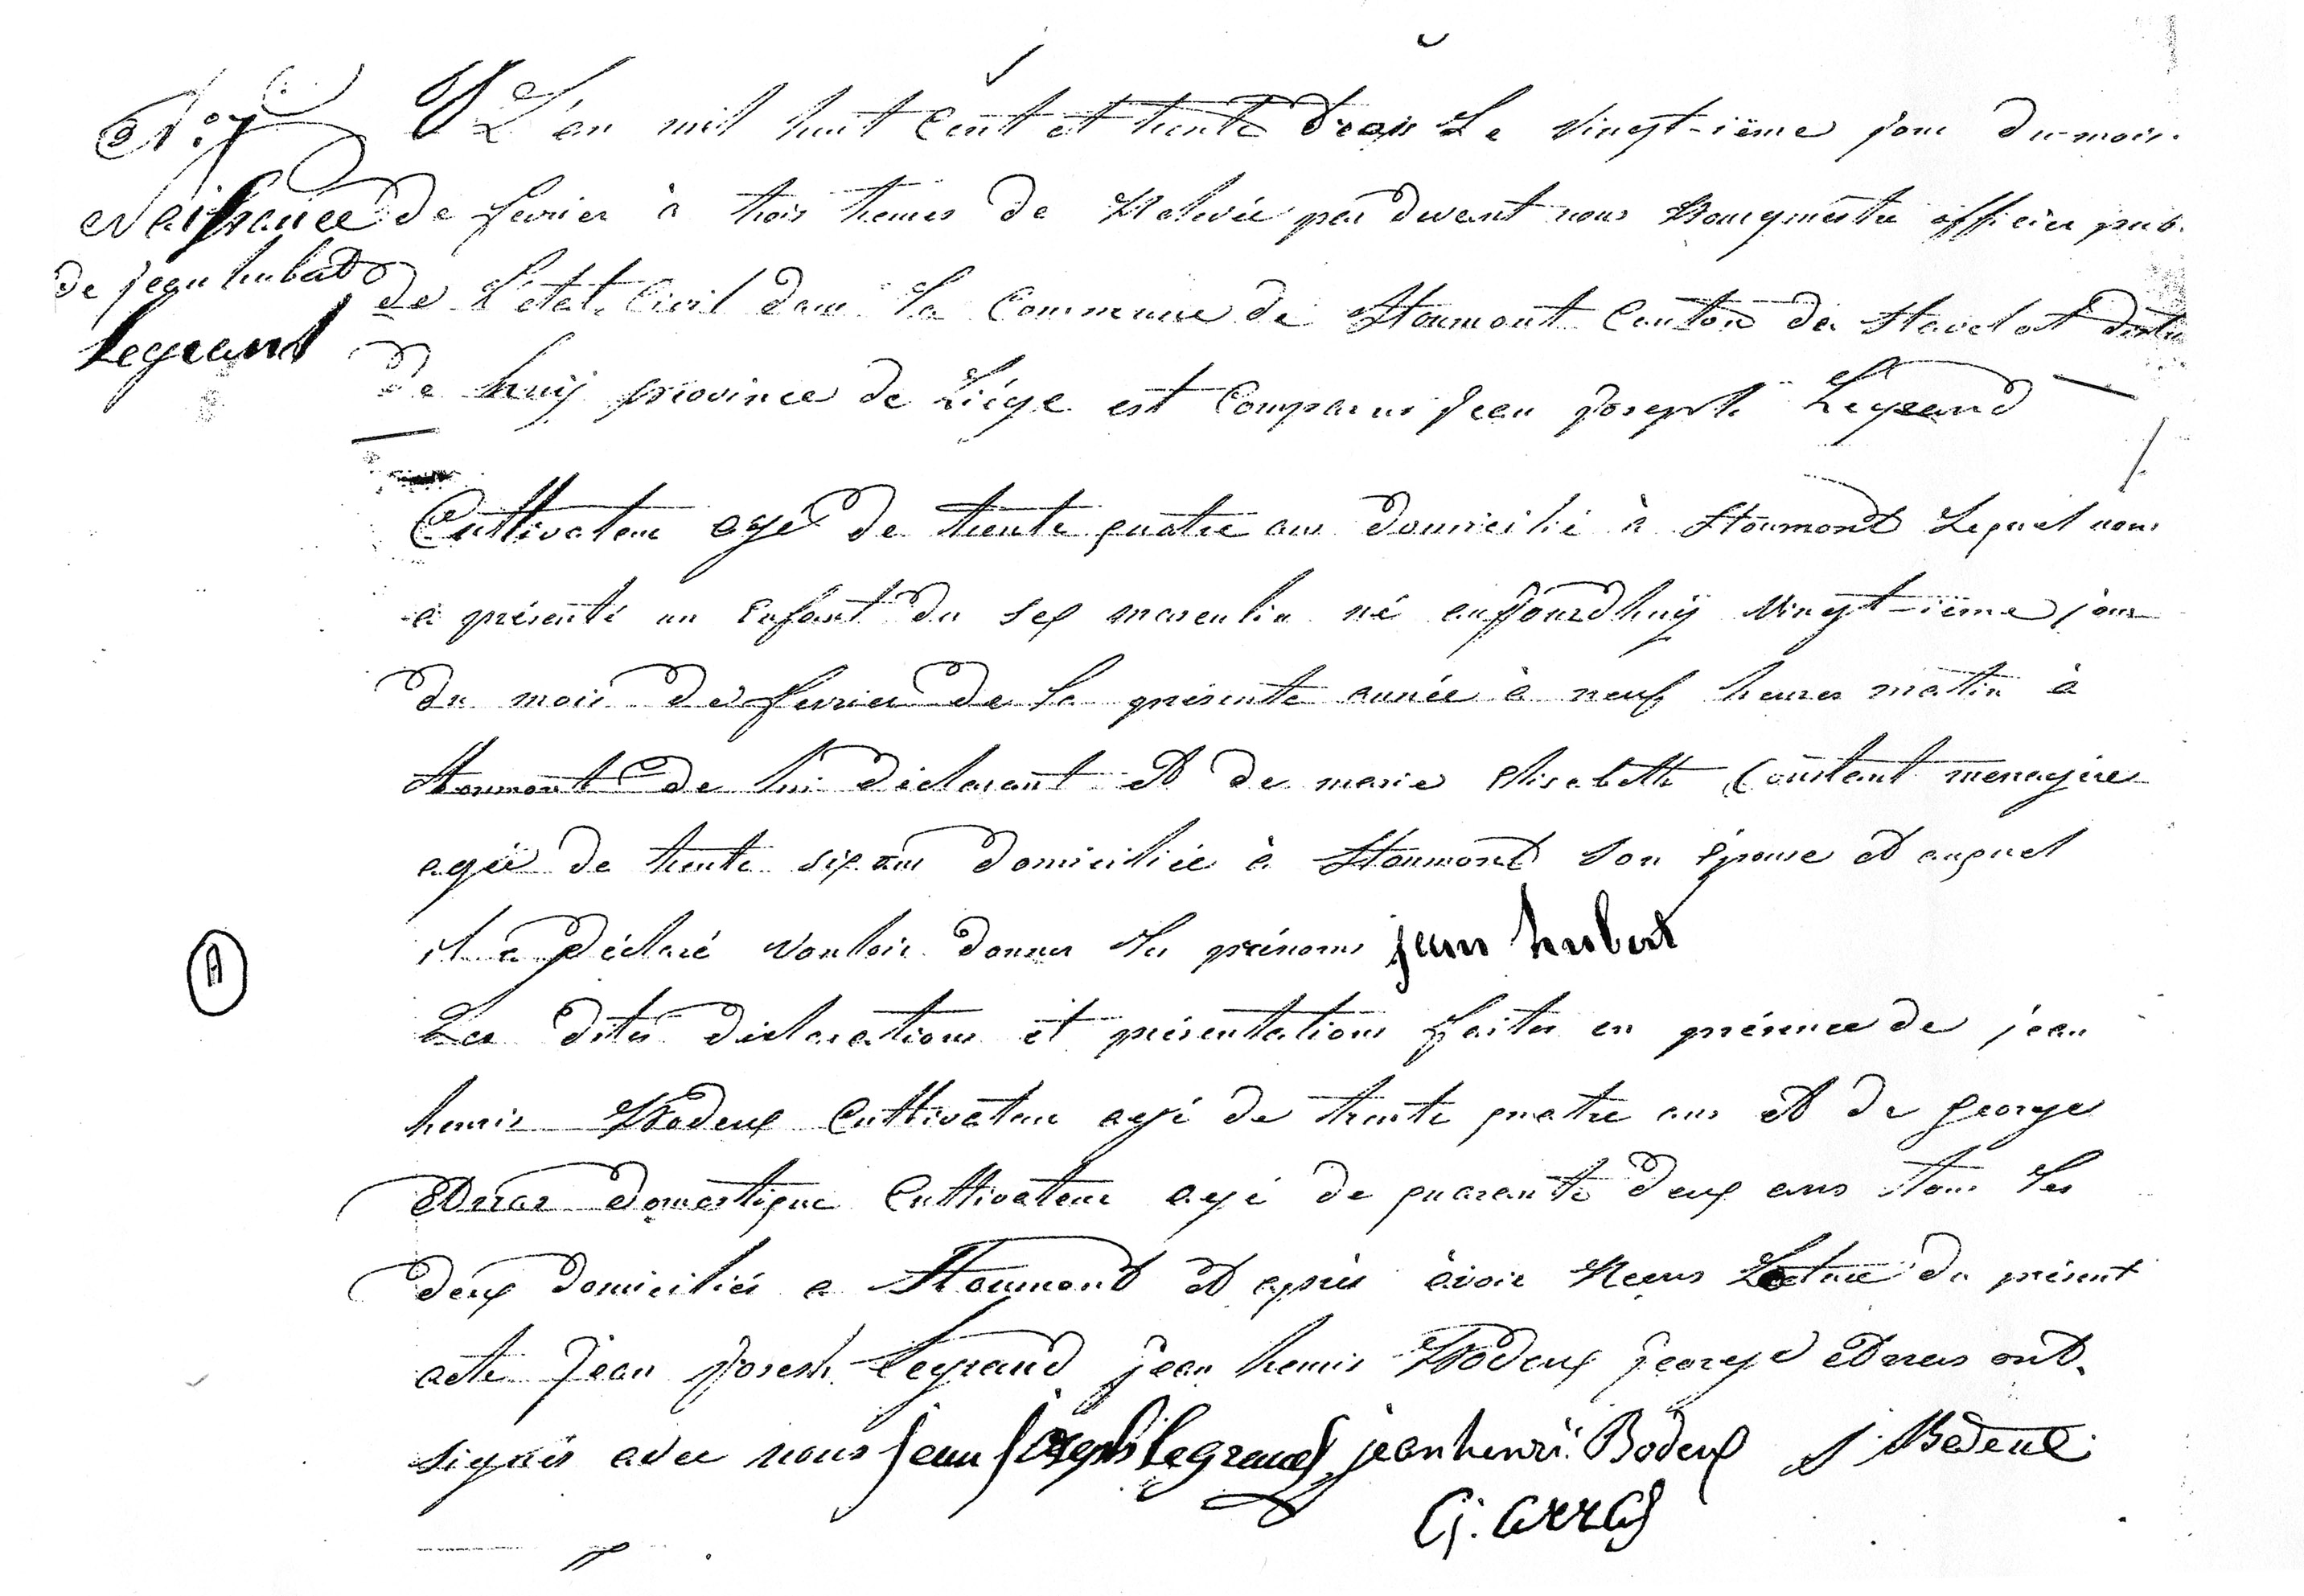 N:7
Naissance
de jean hubert
Legrand
L'an mil huit Cent et trente trois Le vingt-ième jour du mois
de fevrier à trois heures de Relevée par devant nous Bourgmestre officier pub.
de L'état Civil dans la Commune de Stoumont Canton de Stavelot
de huij province de Liége est Comparus Jean Joseph Legrand
Cultivateur agé de trente quatre ans domicilié à Stoumont Lequel nous
a présenté un enfant du sex masculin né aujourdhuij vingt-ième jour
du mois de fevrier de la présente année à neuf heures matin à
Stoumont de lui déclarant et de marie elisabeth Constant menagère
agée de trente six ans domiciliée à Stoumont son épouse et auquel
il a déclaré vouloir donner les prénoms jean hubert
Les dites déclarations et présentations faites en présence de jean
henris Bodeux Cultivateur agé de trente quatre ans et de george
Arras domestique Cultivateur agé de quarante deux ans tous les
deux domiciliés a Stoumont et après avoir Recus Lecture du présent
acte Jean Joseph Legrand Jean henris Bodeux george Arras ont
signés avec nous Jean Joseph legrand jean henri Bodeux J Bodeux
G. arras
A